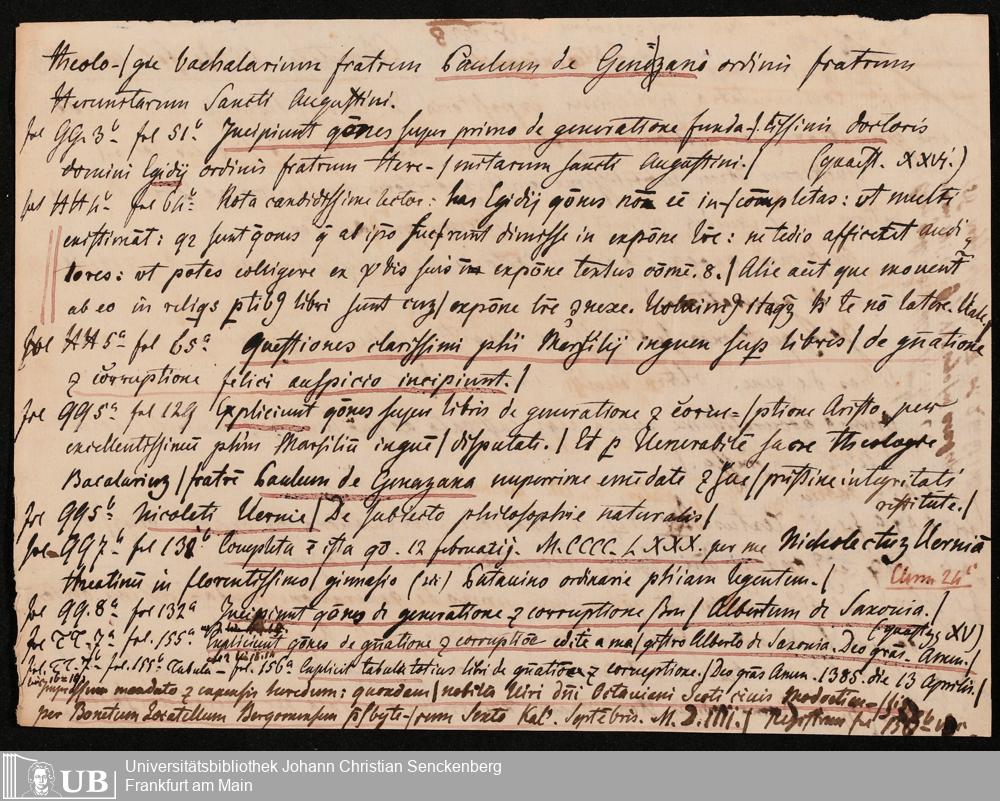 theolo-/gie bachalarium fratrem Paulum de Genezano ordinis fratrum
Heremitarum Sancti Augustini.
fol GG 3b fol 51b Incipiunt qōnes super primo de generatione funda-/tissimi doctoris
domini Egidij ordinis fratrum Here-/mitarum sancti Augustini./ (quaest. XXVI.)
fol HH 4b fol 64b Nota candidissime lector: has Egidij qōnes nōn eē in-/cōmpletas: ut multi
existimāt: qz sunt qōnes q ab ipō fuerunt dimisse in expōne lrē: ne tedio afficeret audi
tores: ut potes colligere ex v dis suis in expōne textus cōmē. 8./ Alie aūt que movent
ab eo in reliqs ptibq libri sunt cuz/ expōne lrē ꝯnexe. itaqz te nō latere. Vale/
fol HH 5a fol 65a Questiones clarissimi phi Marsilij inguen sup libris/ de gnātione
z cōrruptione felici auspicio incipiunt./
fol QQ 5a fol 129 Expliciunt qōnes super libris de generatione z cōrru-/ptione Aristo. per
excellentissimū phm Marsiliū inguē/ disputati./ Et p Venerabilē sacre theologie
Bacalariuz/ fratrē Paulum de Genezana nuperrime emēdate z sue/ pristine integritati
restitute./
fol QQ 5b Nicoleti Vernie/ De subiecto philosophie naturalis/
fol QQ 7b fol 131b Completa ē ista qō. 12 februarij. M.CCCC.LXXX. per me Nicholectuz Verniā
theatinū in florentissimo/ ginnasio (sic) Patavino ordinarie phiam legentem./ Cum 24 c
fol QQ.8a fol 132a Incipiunt qōnes de generatione z corruptione fm/ Albertum de Saxonia./
(quaest. XV)
fol TT.7a fol. 155a Expliciunt qōnes de gnātione z corruptiōe edite a ma/gistro Alberto de Saxonia. Deo grās. Amen./
fol. TT.7b fol. 155b Tabula - fol. 156a Explicit tabula totius libri de gnātione z corruptione./ Deo grās Amen. 1385. die 13 Aprilis./
Impressum mandato z expensis heredum: quondam/ nobilis Viri dnī Octaviani Scoti civis Modoetien-/sis
per Bonetum Locatellum Bergomensem p̄sbyte-/rum Sexto Kal. Septēbris. M.D.IIII./ Registrum fol 156b